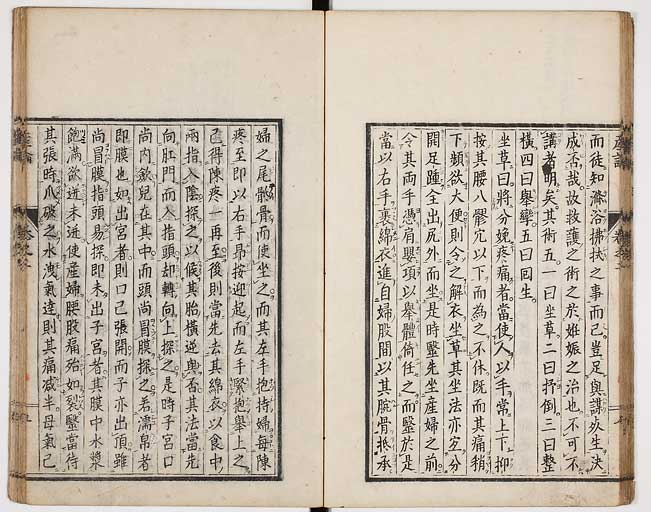 而徒知滌浴拂拭之事而已豈足與謀夫生決
成否哉故救護之術之於姙娠之治也不可不
講者明矣其術五一曰坐草二曰抒倒三曰整
橫四曰舉攣五曰回生
坐草曰將分娩疼痛者當使人以手常上下抑
按其腰八髎穴以下而為之不休既而其痛稍
下頻欲大便則令之解衣坐草其坐法亦宜分
開足踵全出尻外而坐是時醫先坐產婦之前
令其兩手憑肩嬰項以舉體倚任之而醫於是
當以右手裹綿衣進自婦股間以其腕骨抵承
婦之尾骶骨而使坐之而其左手抱持婦每陳
疼至即以右手昂按迎起而左手緊抱舉上之
已得陳疼一再至後則當先去其綿衣以食中
兩指入陰探之以候其胎橫逆與否其法當先
向肛門而入指頭却轉向上探之是時子宮口
尚內斂兒在其中而頭尚冒膜探之若濡帛者
即膜也如出宮者則口已張開而子亦出頂雖
尚冒膜指頭易探即未出子宮者其膜中水漿
飽滿欲迸未迸使產婦腰股痛殆如裂醫當待
其張時爪破之水洩氣達則其痛减半母氣已